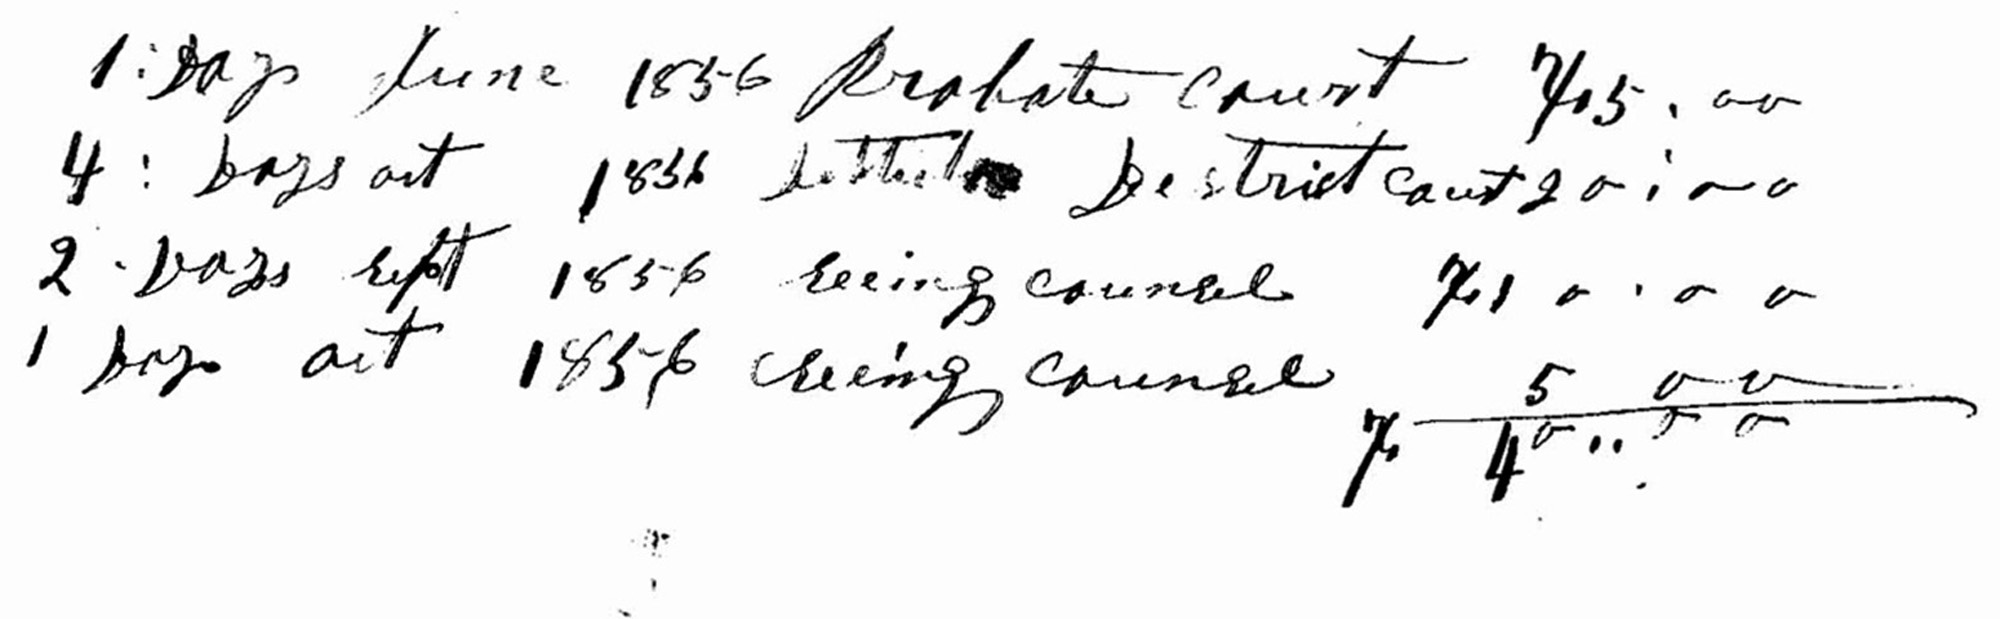 1: Day June 1856 Probate Court $5.00
4: Days oct 1856 District Court 20.00
2. Days sept 1856 seeing counsel $10.00
1 Day oct 1856 seeing counsel 5 00
$ 40..00